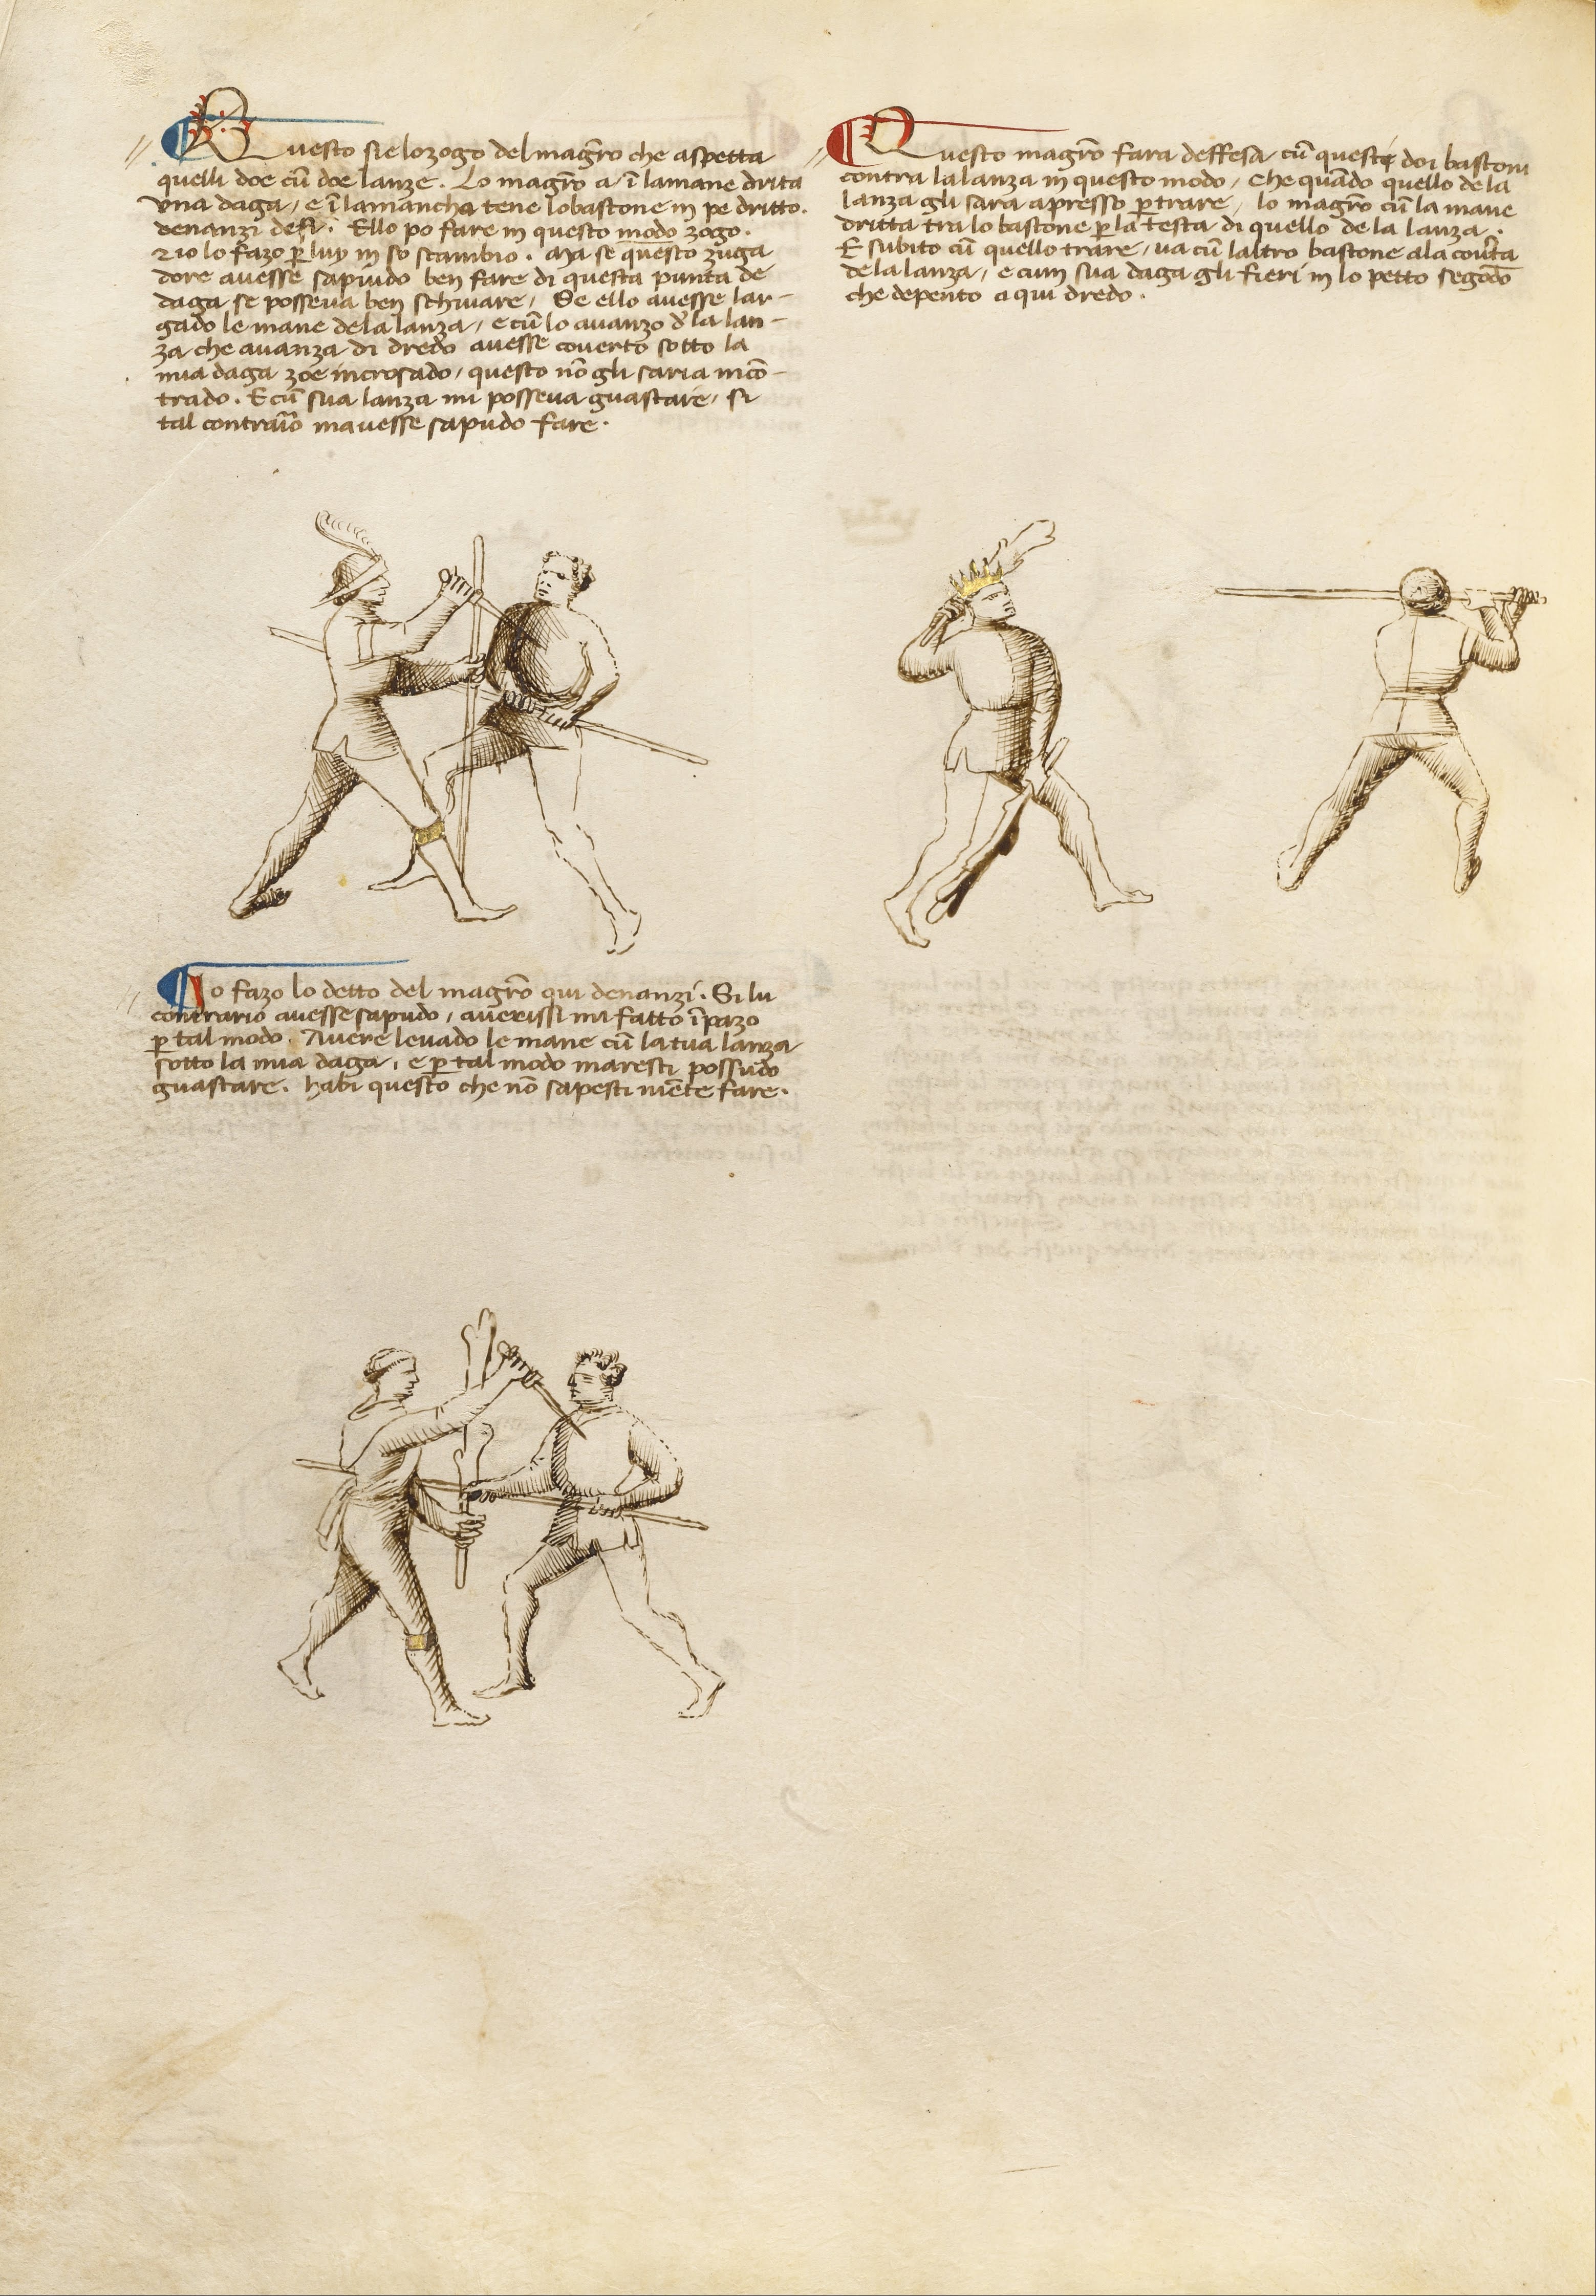 Questo sie lo zogo del magr̄o che aspetta
quelli doe cū doe lanze. Lo magr̄o a ī la mane drita
una daga / e ī la mancha tene lo bastone in pe dritto.
denanzi de si. Ello po fare in questo modo zogo.
Zio lo fazo p̱ luy in so scambio. Ma se questo zuga
dore avesse sapiudo ben fare di questa punta de
daga se posseva ben schivare / Se ello avesse lar-
gado le mane de la lanza / e cū lo avanzo d̓ la lan-
za che avanza di dredo avesse coverto sotto la
mia daga zoe incrosado / questo nō gli saria incō-
trado. E cū sua lanza mi posseva guastare / si
tal contrār̄io m avesse sapudo fare.
Questo magr̄o fara deffesa cū queste doi bastoni
contra la lanza in questo modo / Che quādo quello de la
lanza gli sara apresso p̱ trare / lo magr̄o cū la mane
dritta tra lo bastone p̱ la testa di quello de la lanza.
E subito cū quello trare / va cū laltro bastone ala cov̓ta
de la lanza / e cum sua daga gli fieri in lo petto segōdo
che depento a qui dredo.
Io fazo lo detto del magr̄o qui denanzi. Si lu
contrario avesse sapudo / averissi mi fatto īpazo
p̱ tal modo. Avere levado le mane cū la tua lanza
sotto la mia daga / e p̱ tal modo maresti possudo
guastare. Habi questo che nō sapesti niēte fare.